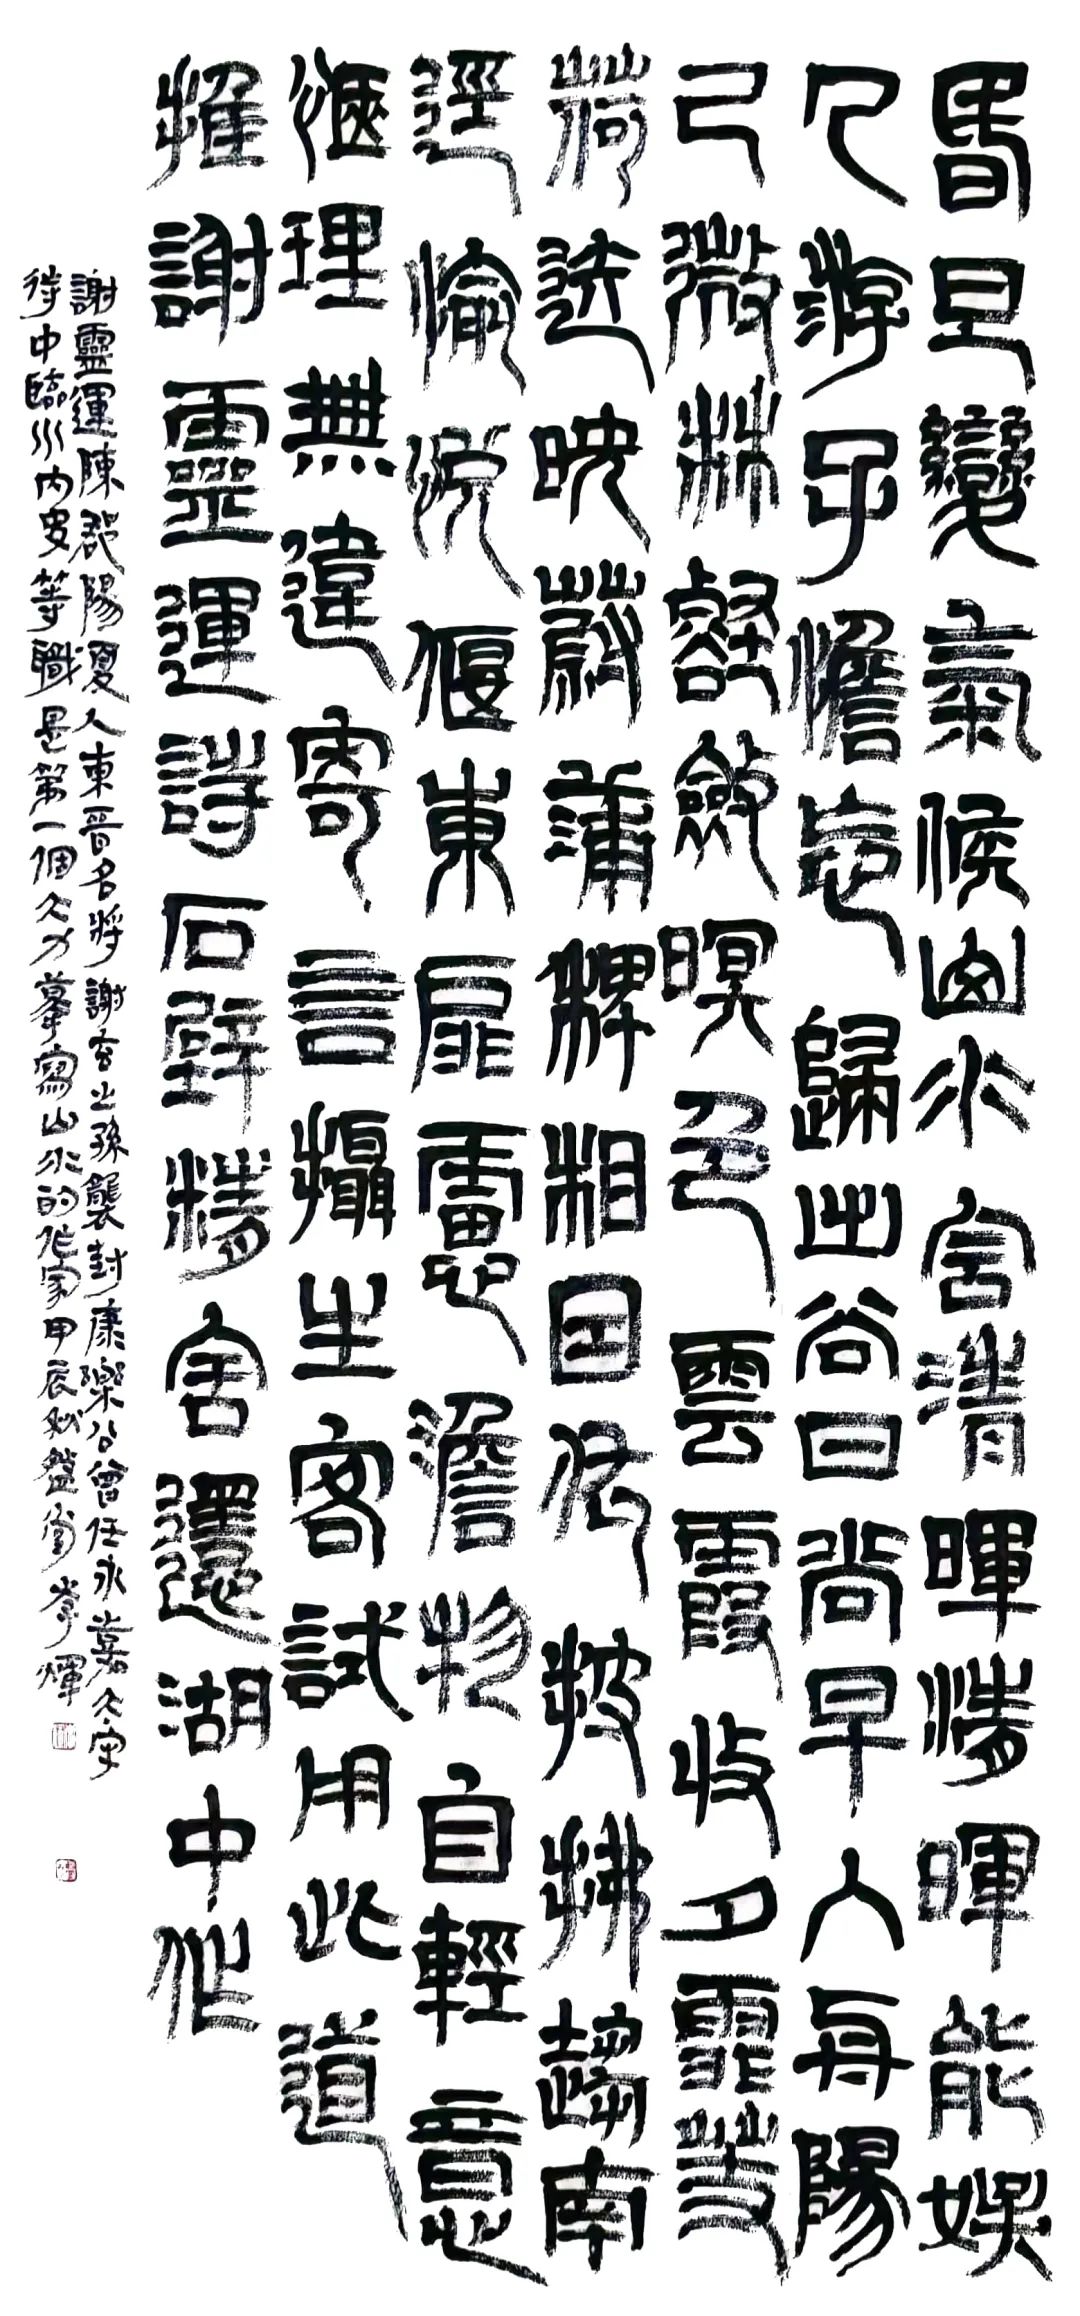 昏旦變氣候山水含清暉清暉能娛
人游子憺忘歸出谷日尚早入舟陽
已微林壑斂暝色雲霞收夕霏芰
荷迭映蔚蒲稗相因依披拂趨南
逕愉悅偃東扉慮澹物自輕意
愜理無違寄言攝生客試用此道
推謝靈運詩石壁精舍還湖中作
謝靈運陳郡陽夏人東晉名將謝玄之孫襲封康樂公曾任永嘉太守
侍中臨川內史等職是第一個大力摹寫山水的作家甲辰秋